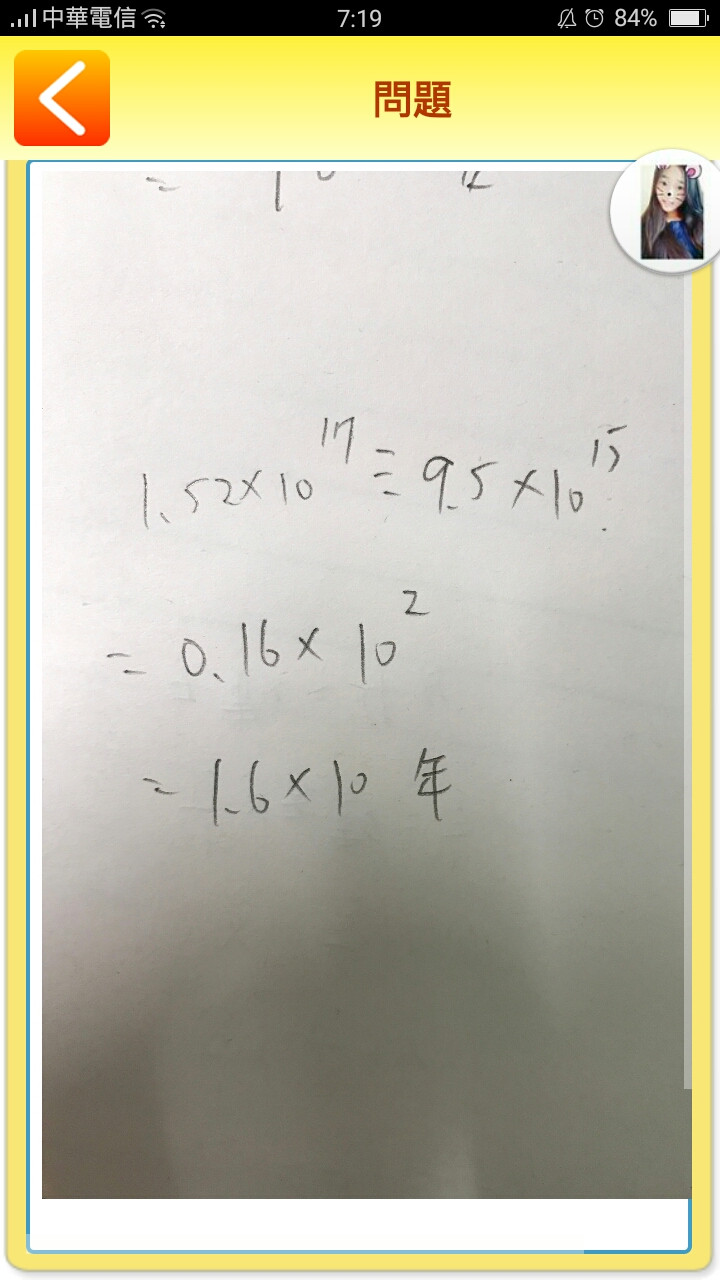 中華電信 7:19 84%
問題
1.52×10¹⁷ ÷ 9.5×10¹⁵
= 0.16×10²
= 1.6×10 年